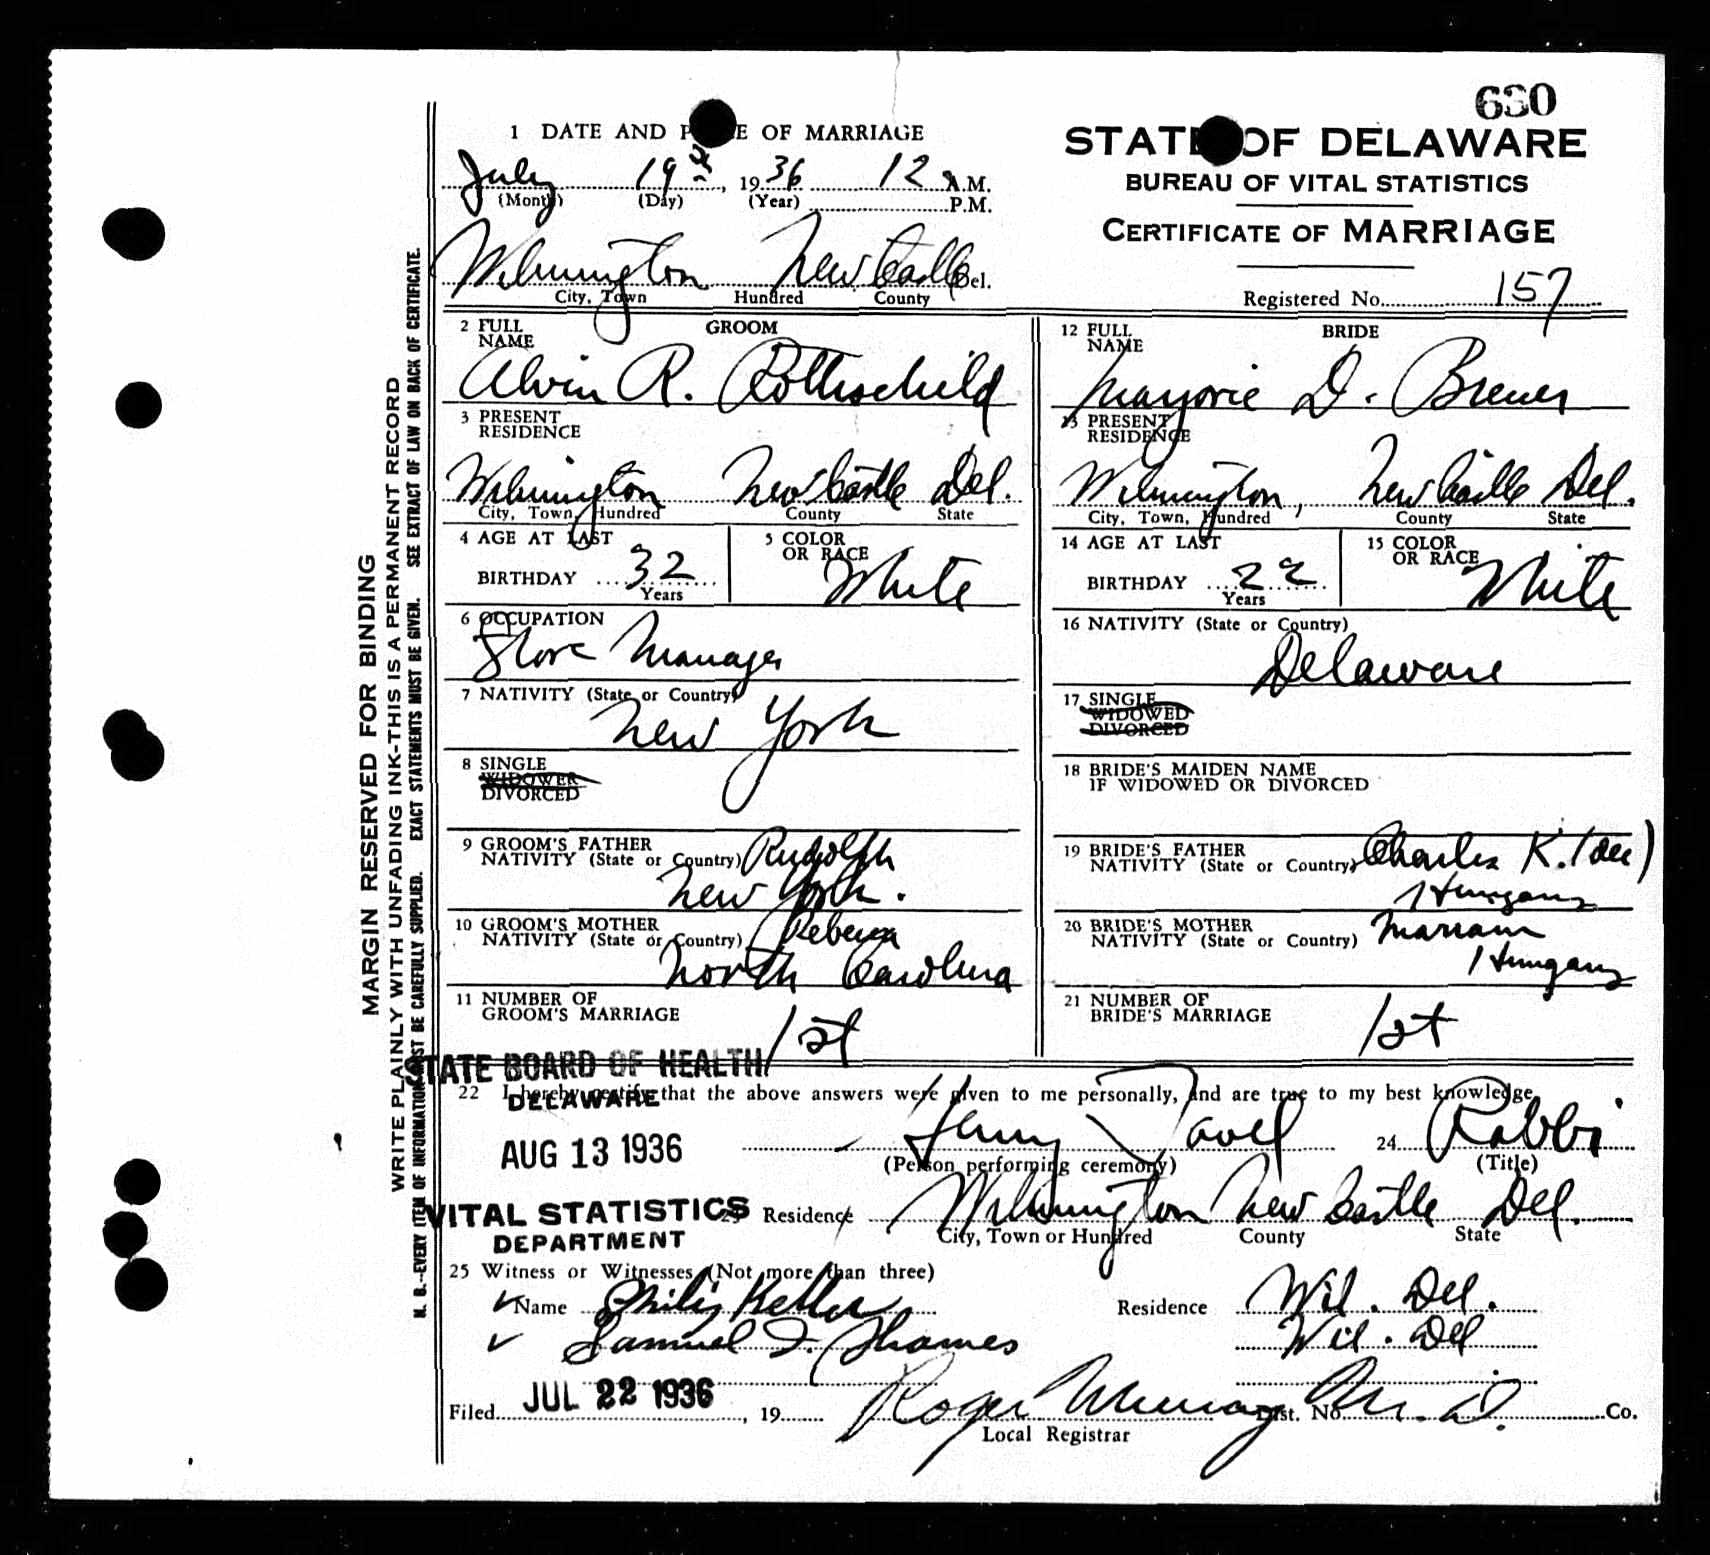 630
1 DATE AND P E OF MARRIAGE
STATE OF DELAWARE
BUREAU OF VITAL STATISTICS
CERTIFICATE OF MARRIAGE
July 19th, 1936 12 A.M.
(Month) (Day) (Year) P.M.
Wilmington New Castle Del.
City, Town Hundred County
Registered No. 157
2 FULL NAME GROOM
Alvin R. Rothschild
3 PRESENT RESIDENCE
Wilmington New Castle Del.
City, Town, Hundred County State
4 AGE AT LAST BIRTHDAY 32 Years
5 COLOR OR RACE White
6 OCCUPATION
Store Manager
7 NATIVITY (State or Country)
New York
8 SINGLE
WIDOWER
DIVORCED
9 GROOM'S FATHER Rudolph
NATIVITY (State or Country)
New York.
10 GROOM'S MOTHER Rebecca
NATIVITY (State or Country)
North Carolina
11 NUMBER OF
GROOM'S MARRIAGE 1st
12 FULL NAME BRIDE
Marjorie D. Brewer
13 PRESENT RESIDENCE
Wilmington, New Castle Del.
City, Town, Hundred County State
14 AGE AT LAST BIRTHDAY 22 Years
15 COLOR OR RACE White
16 NATIVITY (State or Country)
Delaware
17 SINGLE
WIDOWED
DIVORCED
18 BRIDE'S MAIDEN NAME
IF WIDOWED OR DIVORCED
19 BRIDE'S FATHER
NATIVITY (State or Country) Charles K. (dec)
Hungary
20 BRIDE'S MOTHER
NATIVITY (State or Country) Mariam
Hungary
21 NUMBER OF
BRIDE'S MARRIAGE 1st
STATE BOARD OF HEALTH
22 I hereby certify that the above answers were given to me personally, and are true to my best knowledge.
DELAWARE
AUG 13 1936
Henry Tavel 24 Rabbi
(Person performing ceremony) (Title)
VITAL STATISTICS
DEPARTMENT
23 Residence Wilmington New Castle Del.
City, Town or Hundred County State
25 Witness or Witnesses (Not more than three)
Name Philip Keller Residence Wil. Del.
Samuel I. Thames Wil. Del
Filed JUL 22 1936, 19 Roger Murray M.D. Dist. No. Co.
Local Registrar
MARGIN RESERVED FOR BINDING
WRITE PLAINLY WITH UNFADING INK-THIS IS A PERMANENT RECORD
N. B.-EVERY ITEM OF INFORMATION MUST BE CAREFULLY SUPPLIED. EXACT STATEMENTS MUST BE GIVEN. SEE EXTRACT OF LAW ON BACK OF CERTIFICATE.